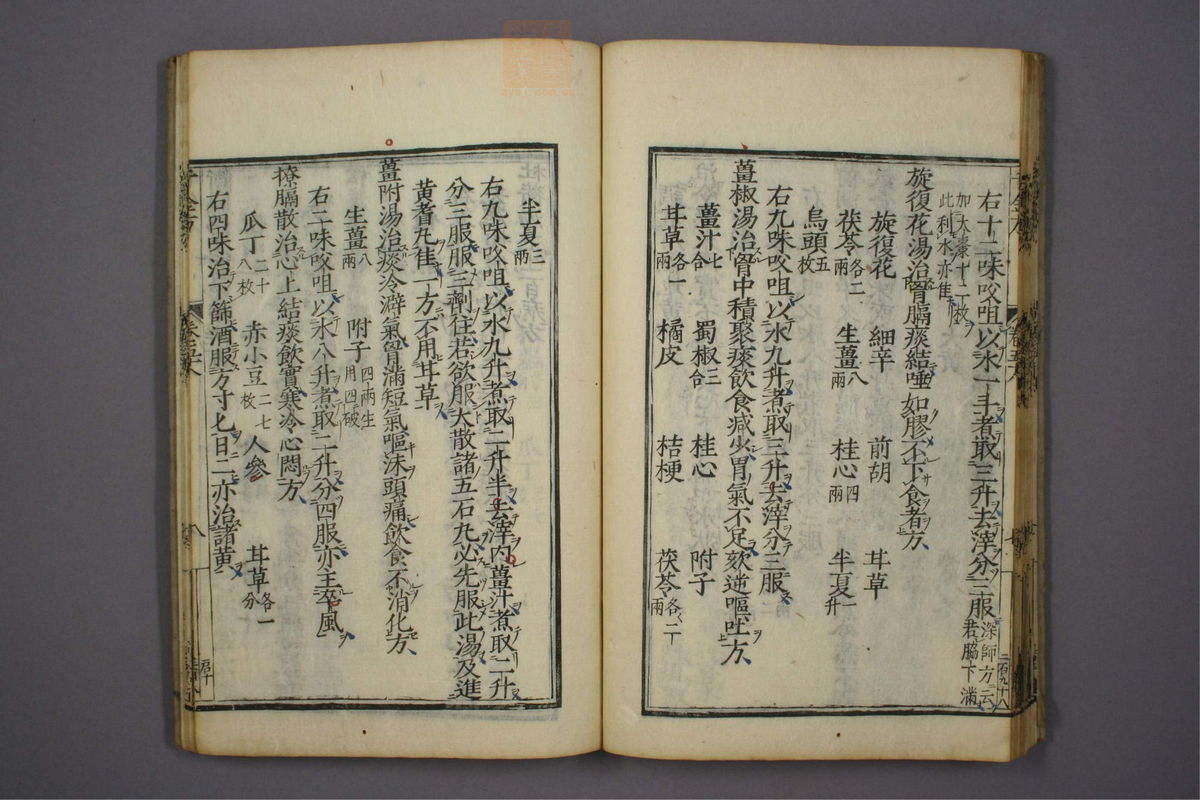 右十二味㕮咀以水一斗煮取三升去滓分三服深師方云若脇下滿
加大棗十二枚此利水亦佳
旋復花湯治胷膈痰結唾如膠不下食者方
旋復花 細辛 前胡 甘草
茯苓各二兩 生薑八兩 桂心四兩 半夏一升
烏頭五枚
右九味㕮咀以水九升煮取三升去滓分三服
薑椒湯治胷中積聚痰飲飲食減少胃氣不足欬逆嘔吐方
薑汁七合 蜀椒三合 桂心 附子
甘草各一兩 橘皮 桔梗 茯苓各二兩
半夏三兩
右九味㕮咀以水九升煮取二升半去滓內薑汁煮取二升
分三服服三劑住若欲服大散諸五石丸必先服此湯及進
黄耆丸佳一方不用甘草
薑附湯治痰冷澼氣胷滿短氣嘔沫頭痛飲食不消化方
生薑八兩 附子四兩生用四破
右二味㕮咀以水八升煮取二升分四服亦主卒風
撩膈散治心上結痰飲實寒冷心悶方
瓜丁二十八枚 赤小豆二七枚 人參 甘草各一分
右四味治下篩酒服方寸匕日二亦治諸黄